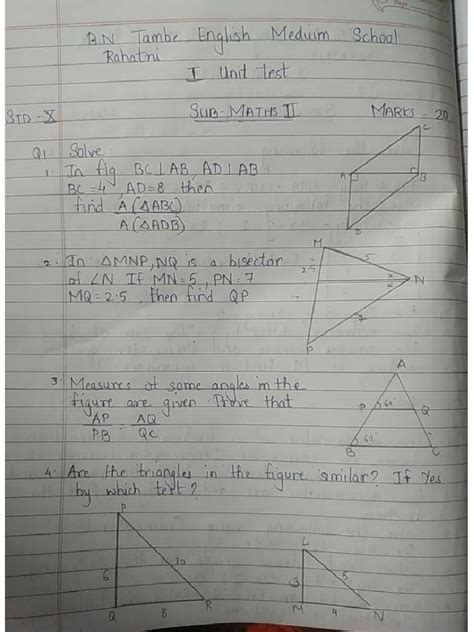 B.N Tambe English Medium School
Rahatni
I Unit test
STD-X SUB-MATHS II MARKS - 20
Q1 Solve
1. In fig BC⊥AB, AD⊥AB
BC=4, AD=8 then
find A(△ABC)
A(△ADB)
C
A
B
D
2. In △MNP, NQ is a bisector
of ∠N. If MN=5, PN=7
MQ=2.5, then find QP
M
2.5
5
x
x
N
7
P
3. Measures of some angles in the
figure are given. Prove that
AP = AQ
PB QC
A
P 60° Q
B 60° C
4. Are the triangles in the figure similar? If Yes
by which test?
P
6
10
Q 8 R
L
3
5
M 4 N